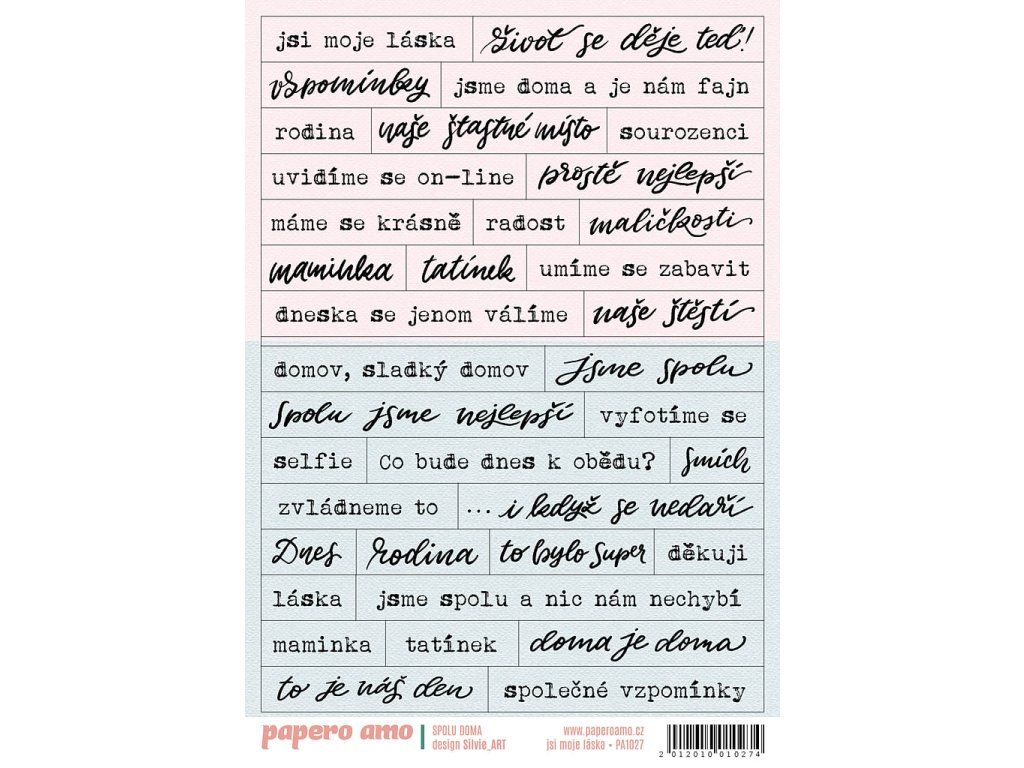 jsi moje láska život se děje teď!
vzpomínky jsme doma a je nám fajn
rodina naše šťastné místo sourozenci
uvidíme se on-line prostě nejlepší
máme se krásně radost maličkosti
maminka tatínek umíme se zabavit
dneska se jenom válíme naše štěstí
domov, sladký domov jsme spolu
Spolu jsme nejlepší vyfotíme se
selfie Co bude dnes k obědu? smích
zvládneme to ... i když se nedaří
Dnes rodina to bylo super děkuji
láska jsme spolu a nic nám nechybí
maminka tatínek doma je doma
to je náš den společné vzpomínky
papero amo SPOLU DOMA www.paperoamo.cz
design Silvie_ART jsi moje láska • PA1027
2 012010 010274